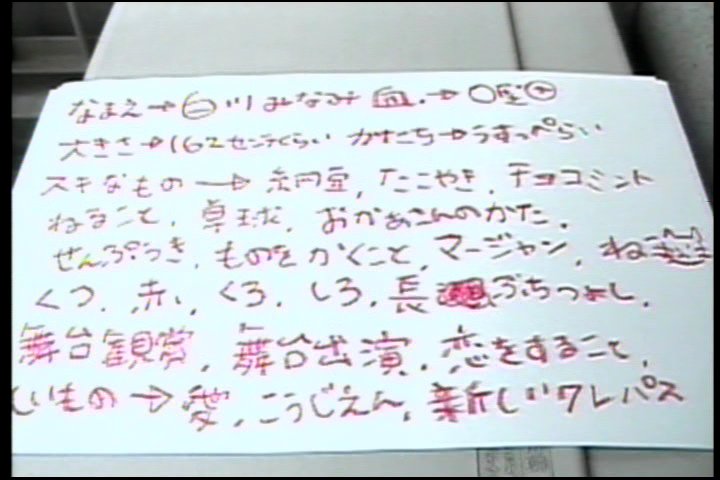 なまえ→白川みなみ 血.→O型+
大きさ→162センチくらい かたち→うすっぺらい
スキなもの→糸内豆, たこやき, チョコミント
ねること, 卓球, おかあさんのかた,
せんぷうき, ものをかくこと, マージャン, ね
くつ, 赤, くろ, しろ, 長ぶちつよし,
舞台観賞, 舞台出演, 恋をすること,
しいもの→愛, こうじえん, 新しいワレパス